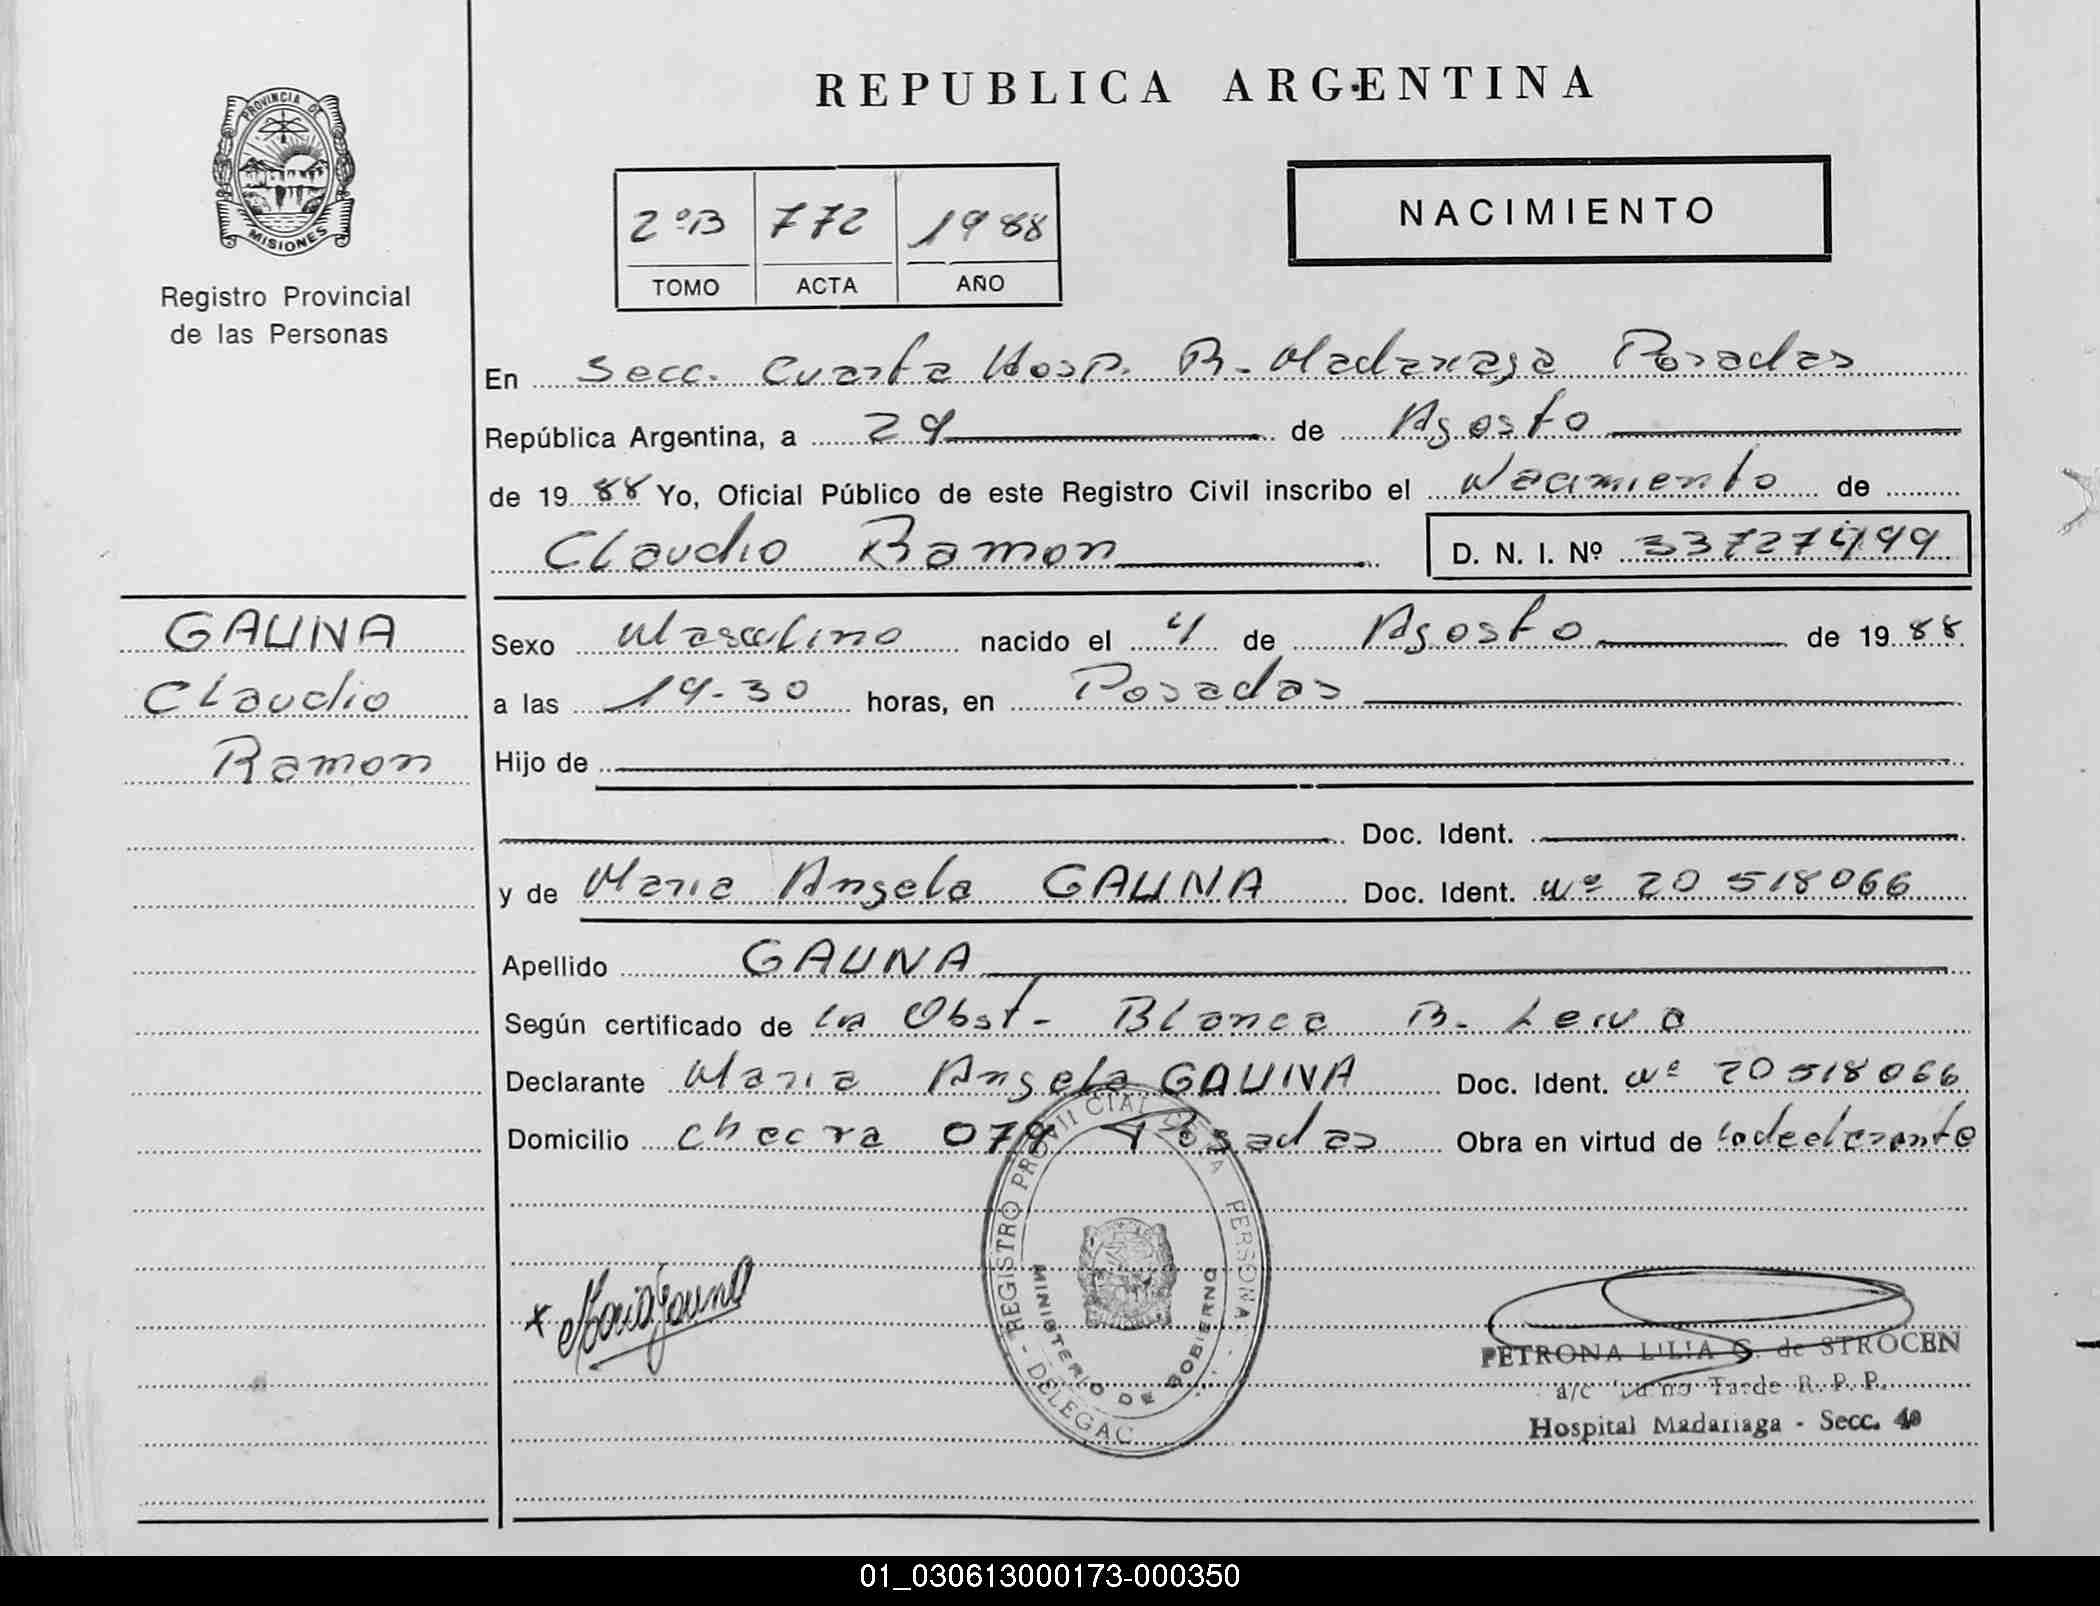 PROVINCIA DE
MISIONES
Registro Provincial
de las Personas
REPUBLICA ARGENTINA
2ºB 772 1988
TOMO ACTA AÑO
NACIMIENTO
En Secc. Cuarta Hosp. R. Madariaga Posadas
República Argentina, a 29 de Agosto
de 1988 Yo, Oficial Público de este Registro Civil inscribo el Nacimiento de
Claudio Ramon D. N. I. Nº
GAUNA
Claudio
Ramon
Sexo Masculino nacido el 4 de Agosto de 1988
a las 19-30 horas, en Posadas
Hijo de
Doc. Ident.
y de Maria Angela GAUNA Doc. Ident. Nº 20518066
Apellido GAUNA
Según certificado de la Obst- Blanca B. Leiva
Declarante Maria Angela GAUNA Doc. Ident. Nº 20518066
Domicilio Chacra Posadas Obra en virtud de
REGISTRO PERSONA
MINISTERIO DE GOBIERNO
DELEGAC
PETRONA LILIA G. de STROCEN
a/c Turno Tarde R. P. P.
Hospital Madariaga - Secc.
01_030613000173-000350